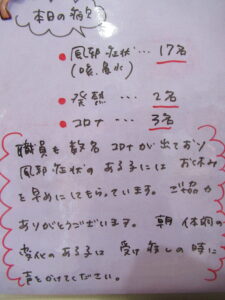 本日の病欠
・風邪症状… 17名
(咳、鼻水)
・発熱 … 2名
・コロナ … 3名
職員も数名 コロナが出ており
風邪症状のある子には お休み
を早めにしてもらっています。ご協力
ありがとうございます。 朝 体調の
変化のある子は 受け渡しの時に
声をかけてください。